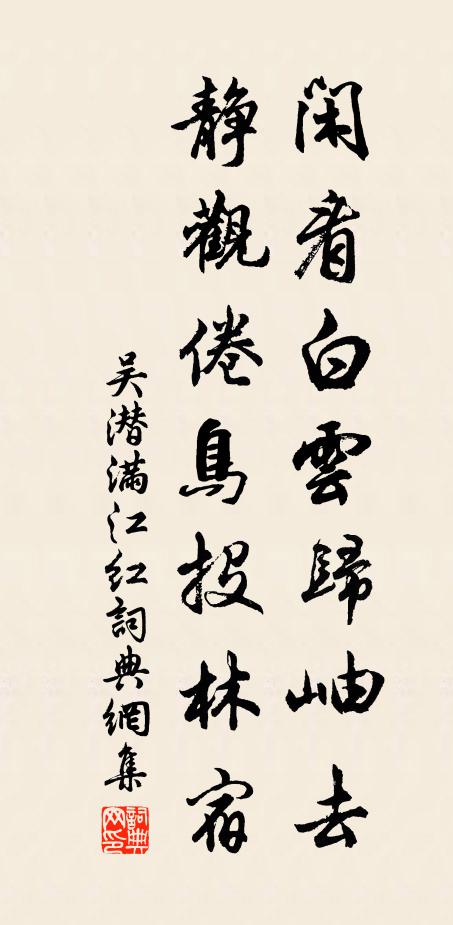 閑看白雲歸岫去
靜觀倦鳥投林宿
吴潜满江红詞典網集
詞典
网印